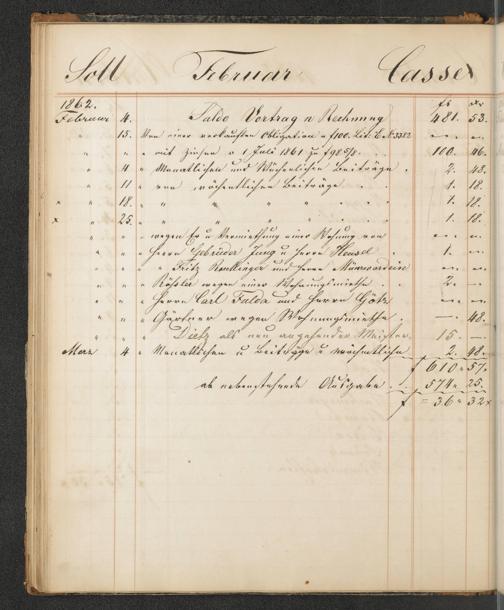 Soll Februar Cassa
1862. fl xr
Februar 4. Saldo Vortrag a Rechnung 481. 53.
" 15. Von einer verkauften Obligation a f100. Lit. B. N 3382
" " " mit Zinsen v 1 Juli 1861 zu f98 5/8 100. 46.
" " 4 " Monatlichen und Wöchentlichen Beiträge 2. 48.
" " 11 " von wöchentlichen Beiträge 1. 18.
" " 18. " " " " 1. 18.
x " 25. " " " " 1. 18.
" " " wegen Ex u Vermiethung einer Wohnung von
" " " Herrn Gebrüder Jung u Herrn Hensel 1. "
" " " " Fritz und Herrn
" " " Köhler wegen einer Wohnungsmiethe 2. —
" " " Herrn Carl Fulda und Herrn Götz — "
" " " Gärtner wegen Wohnungsmiethe — 48.
" " " Dietz als neu angehender Meister 15. —
Merz 4 " Monatlichen u Beiträge u wöchentliche 2. 48.
f 610. 57.
ab nebenstehende Ausgabe 574. 25.
f = 36 = 32x